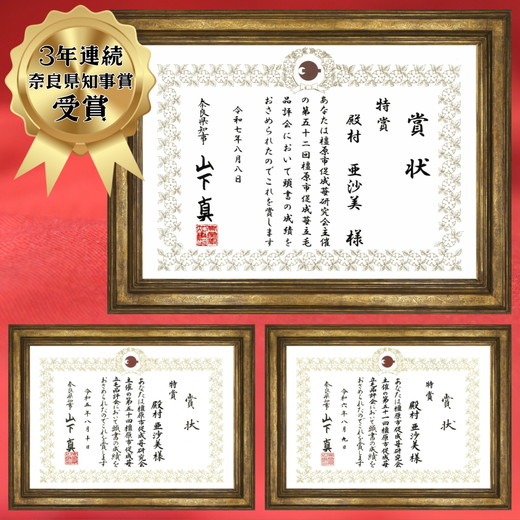 3年連続
奈良県知事賞
受賞
賞状
特賞
殿村 亜沙美 様
あなたは橿原市促成苺研究会主催
の第五十二回橿原市促成苺立毛
品評会において頭書の成績を
おさめられたのでこれを賞します
令和七年八月八日
奈良県知事
山下真
賞状
特賞
殿村 亜沙美 様
あなたは橿原市促成苺研究会
主催の第五十回橿原市促成苺
立毛品評会において頭書の成績を
おさめられたのでこれを賞します
令和五年八月十日
奈良県知事
山下真
賞状
特賞
殿村 亜沙美 様
あなたは橿原市促成苺研究会
主催の第五十一回橿原市促成苺
立毛品評会において頭書の成績を
おさめられたのでこれを賞します
令和六年八月九日
奈良県知事
山下真